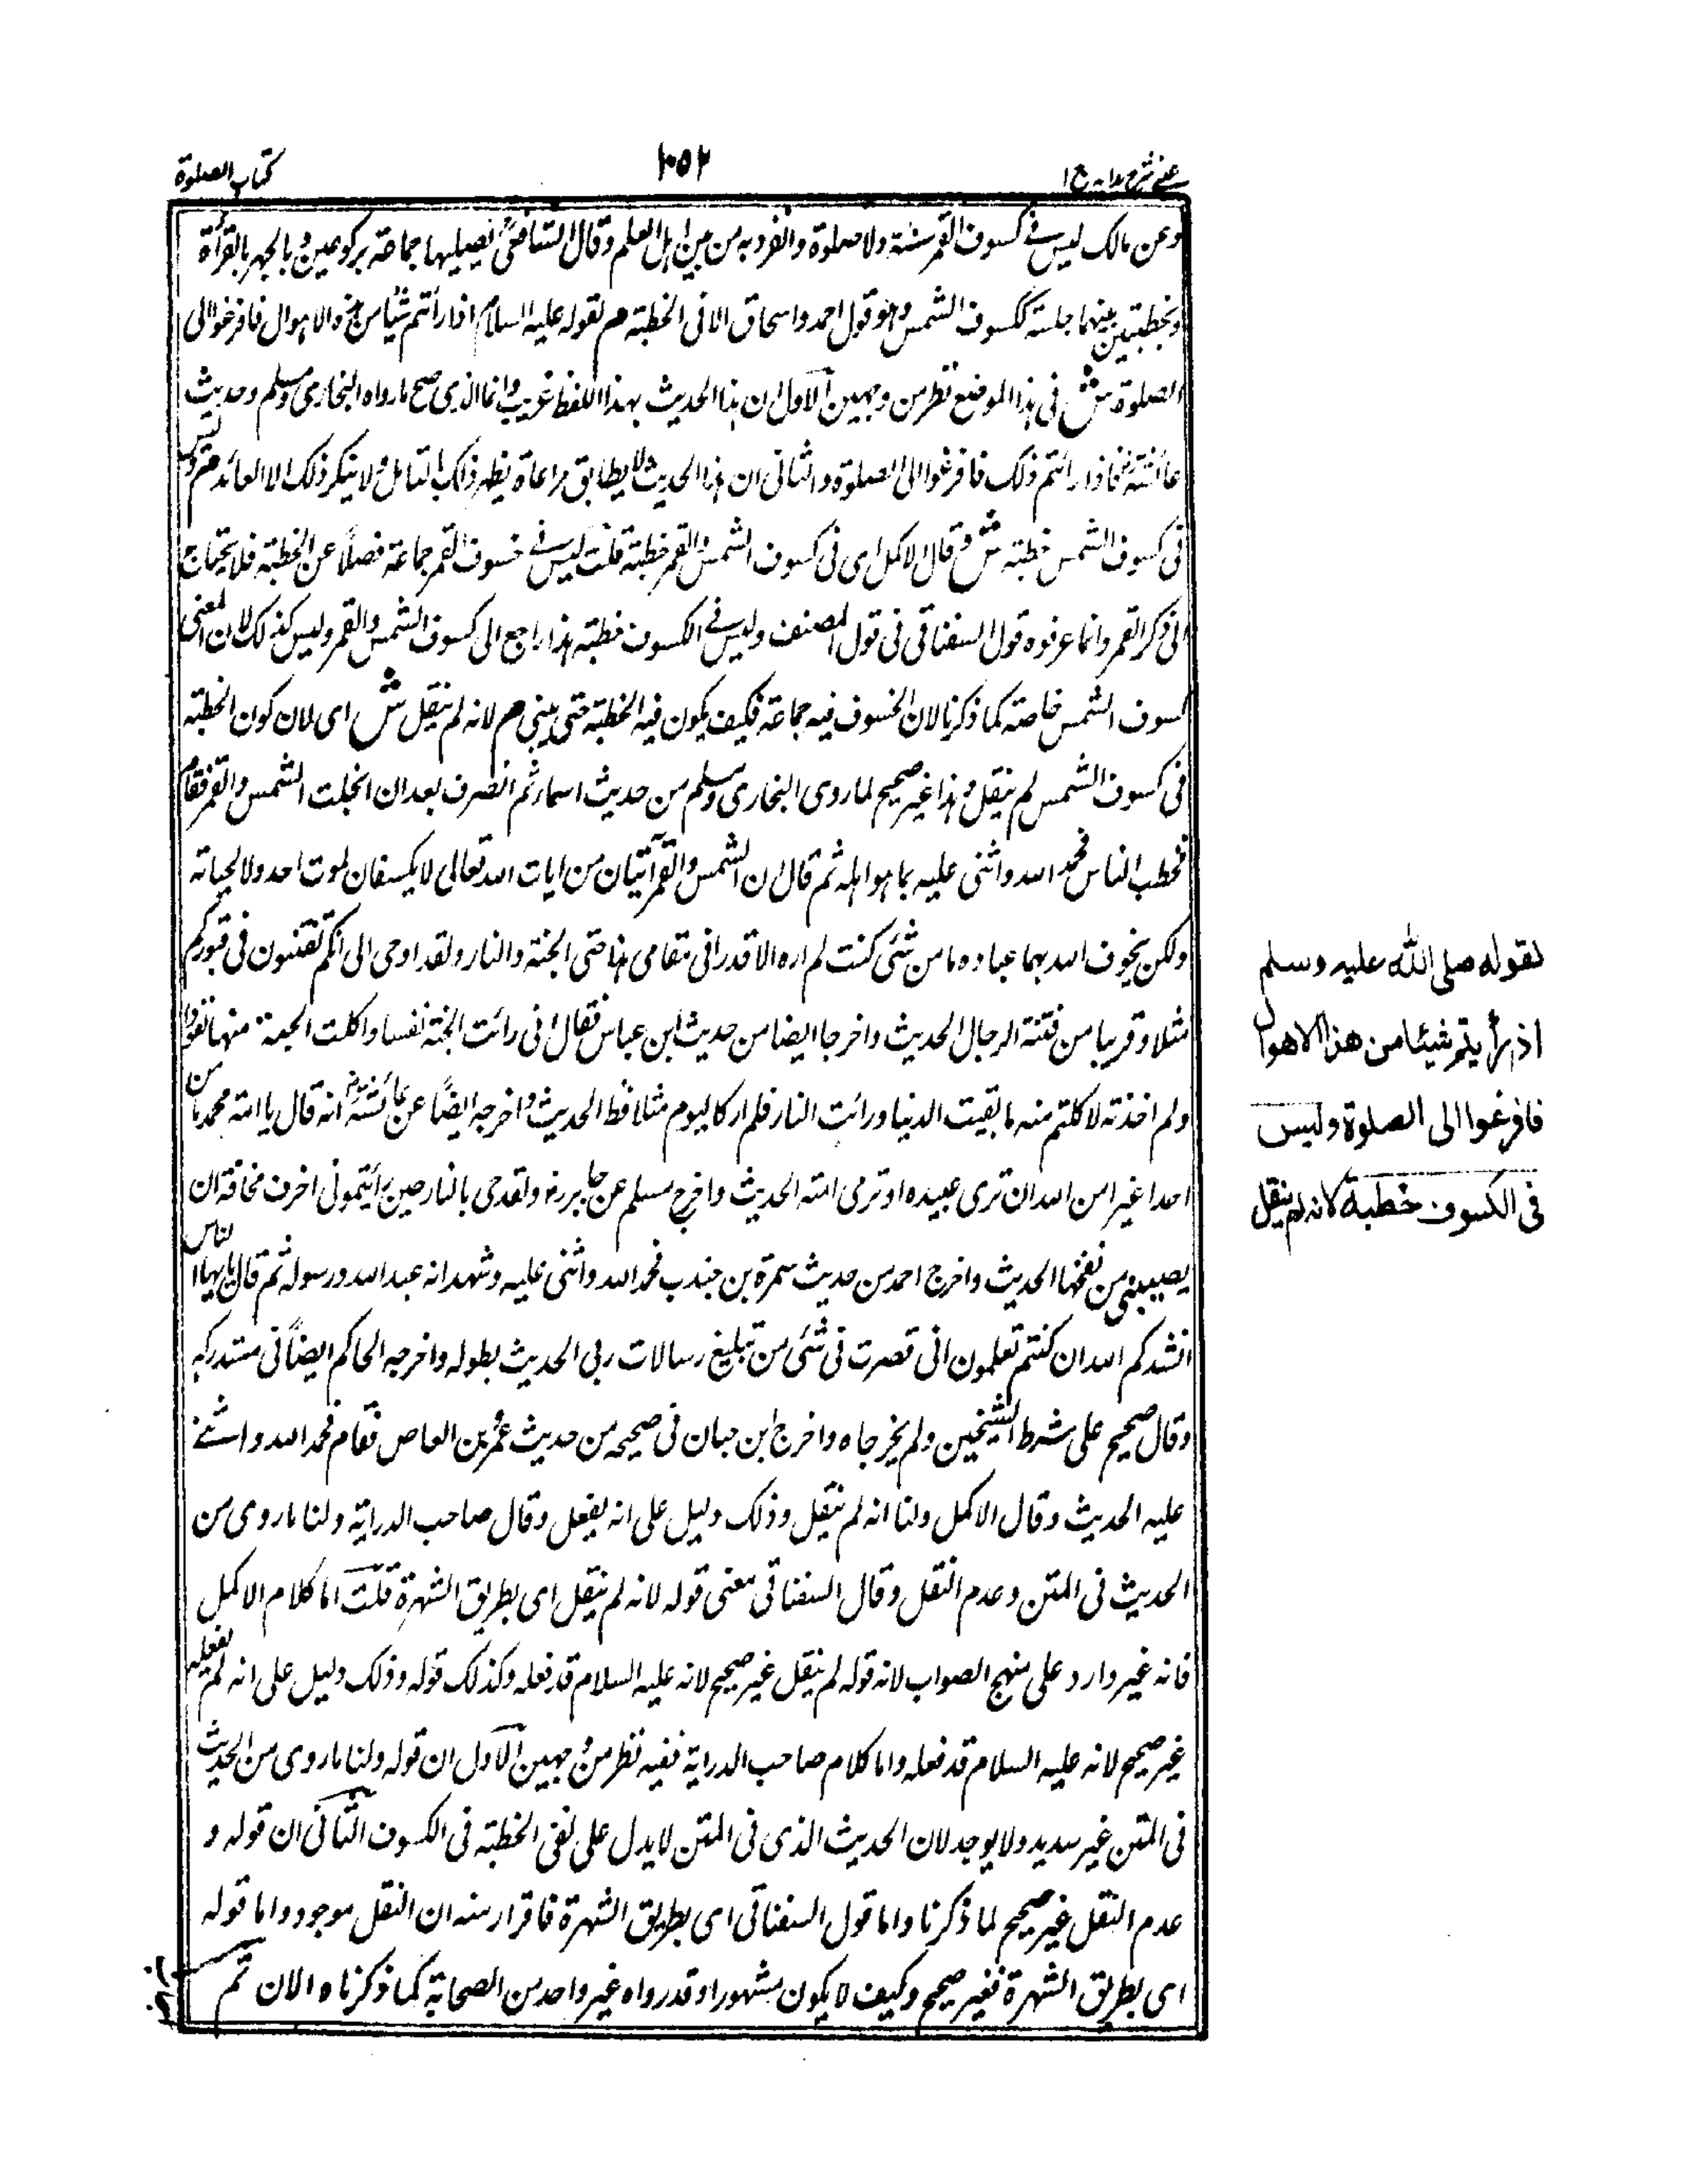 عینی شرح ہدایہ ج ١
١٠٥٢
کتاب الصلوة
وعن مالک لیس فے کسوف القمر سنة ولا صلوة وانفرد به من بین اہل العلم وقال الشافعی یصلیہا جماعة برکوعین وبالجہر بالقرأة
وبخطبتین بینہما جلسة ککسوف الشمس وہو قول احمد واسحاق الا فی الخطبة م لقوله علیه السلام اذا رأیتم شیأ من ہذہ الاہوال فافرغوا الی
الصلوة ش فی ہذا الموضع نظر من وجہین الاول ان ہذا الحدیث بہذا اللفظ غریب وانما الذی صح ما رواه البخاری ومسلم وحدیث
عائشة فاذا رأیتم ذلک فافرغوا الی الصلوة والثانی ان ہذا الحدیث لا یطابق مراعاة یظہر ذلک بالتامل ولا ینکر ذلک الا العائد م ولیس
فی کسوف الشمس خطبة ش وقال الاکمل ای فی کسوف الشمس والقمر خطبة قلت لیس فے خسوف القمر جماعة فضلاً عن الخطبة فلا یحتاج
الی ذکر القمر وانما عرفوه قول السغناقی فی قول المصنف ولیس فے الکسوف خطبة ہذا راجع الی کسوف الشمس والقمر ولیس کذلک لان المعنی
کسوف الشمس خاصة کما ذکرنا لان الخسوف فیه جماعة فکیف یکون فیه الخطبة حتی ینبی م لانه لم ینقل ش ای لان کون الخطبة
فی کسوف الشمس لم ینقل وہذا غیر صحیح لما روی البخاری ومسلم من حدیث اسماء ثم انصرف بعد ان انجلت الشمس والقمر فقام
فخطب الناس فحمد الله واثنی علیه بما ہو اہله ثم قال ان الشمس والقمر آیتان من ایات الله تعالی لا یکسفان لموت احد ولا لحیاته
ولکن یخوف الله بہما عباده ما من شئی کنت لم اره الا قد رانی مقامی ہذا حتی الجنة والنار ولقد اوحی الی انکم تفتنون فی قبورکم
مثلا وقریبا من فتنة الرجال الحدیث واخرجا ایضا من حدیث ابن عباس فقال انی رائت الجنة نفسا واکلت الجنة منہا
ولم اخذته لاکلتم منه ما بقیت الدنیا ورائت النار فلم ار کالیوم مثلا قط الحدیث واخرجه ایضاً عن عائشة انه قال یا امة محمد ما من
احد اغیر من الله ان تری عبیده او ترمی امته الحدیث واخرج مسلم عن جابر ولقد جی بالنار حین رأیتمونی اخرف مخافة ان
یصیبنی من نفخہا الحدیث واخرج احمد من حدیث سمرة بن جندب فحمد الله واثنی علیه وشہد انه عبد الله ورسوله ثم قال یا ایہا الناس
انشدکم الله ان کنتم تعلمون انی قصرت فی شئی من تبلیغ رسالات ربی الحدیث بطوله واخرجه الحاکم ایضاً فی مستدرکه
وقال صحیح علی شرط الشیخین ولم یخرجاه واخرج ابن حبان فی صحیحه من حدیث عمرو بن العاص فقام فحمد الله واثنے
علیه الحدیث وقال الاکمل ولنا انه لم ینقل وذلک دلیل علی انه یفعل وقال صاحب الدرایة ولنا ما روی من
الحدیث فی المتن وعدم النقل وقال السغناقی معنی قوله لانه لم ینقل ای بطریق الشہرة قلت اما کلام الاکمل
فانه غیر وارد علی منہج الصواب لانه قوله لم ینقل غیر صحیح لانه علیه السلام قد فعله وکذلک قوله وذلک دلیل علی انه لم یفعله
غیر صحیح لانه علیه السلام قد فعله واما کلام صاحب الدرایة ففیه نظر من وجہین الاول ان قوله ولنا ما روی من الحدیث
فی المتن غیر سدید ولا یوجد لان الحدیث الذی فی المتن لا یدل علی نفی الخطبة فی الکسوف الثانی ان قوله و
عدم النقل غیر صحیح لما ذکرنا واما قول السغناقی ای بطریق الشہرة فاقرار منه ان النقل موجود واما قوله
ای بطریق الشہرة فغیر صحیح وکیف لا یکون مشہورا وقد رواه غیر واحد من الصحابة کما ذکرناه الان ثم
لقوله صلی الله علیه وسلم
اذ رأیتم شیئا من هذا الاهوال
فافرغوا الی الصلوة ولیس
فی الکسوف خطبة لانه لم ینقل